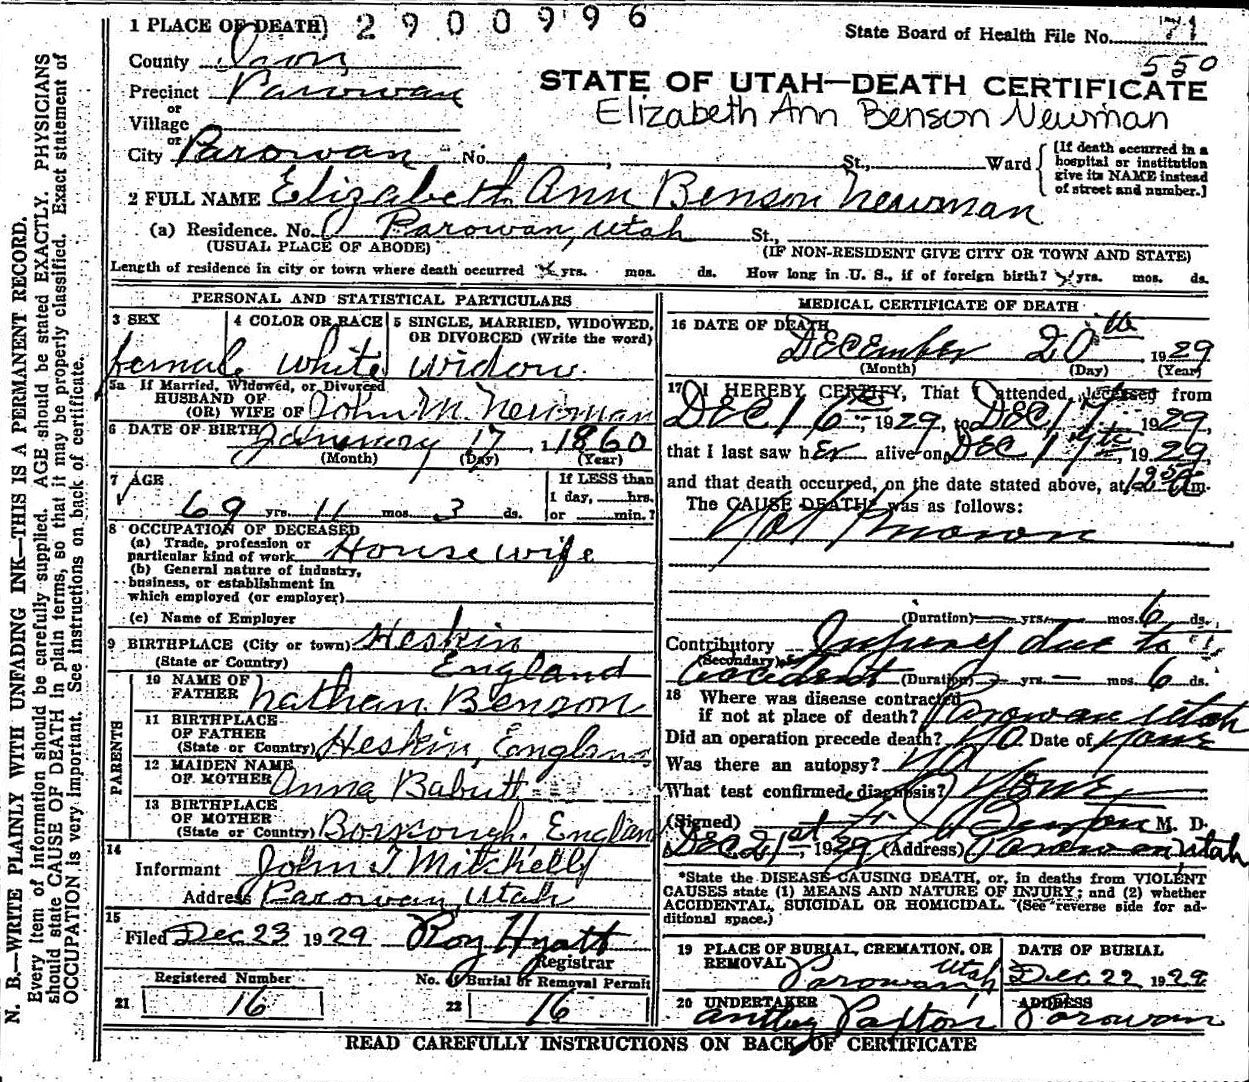 1 PLACE OF DEATH) 2 9 0 0 9 9 6
State Board of Health File No. 71
550
County Iron
STATE OF UTAH—DEATH CERTIFICATE
Precinct Parowan
Elizabeth Ann Benson Newman
or
Village
or
City Parowan No. , St., Ward
[If death occurred in a
hospital or institution
give its NAME instead
of street and number.]
2 FULL NAME Elizabeth Ann Benson Newman
(a) Residence. No. Parowan, Utah St.,
(USUAL PLACE OF ABODE) (IF NON-RESIDENT GIVE CITY OR TOWN AND STATE)
Length of residence in city or town where death occurred yrs. mos. ds. How long in U. S., if of foreign birth? yrs. mos. ds.
PERSONAL AND STATISTICAL PARTICULARS
3 SEX 4 COLOR OR RACE 5 SINGLE, MARRIED, WIDOWED,
OR DIVORCED (Write the word)
female white widow
5a If Married, Widowed, or Divorced
HUSBAND OF
(OR) WIFE OF John M. Newman
6 DATE OF BIRTH January 17, 1860
(Month) (Day) (Year)
7 AGE If LESS than
1 day, hrs.
69 yrs. 11 mos. 3 ds. or min.?
8 OCCUPATION OF DECEASED
(a) Trade, profession or
particular kind of work House wife
(b) General nature of industry,
business, or establishment in
which employed (or employer)
(c) Name of Employer
9 BIRTHPLACE (City or town) Heskin
(State or Country) England
PARENTS
10 NAME OF
FATHER Nathan Benson
11 BIRTHPLACE
OF FATHER
(State or Country) Heskin, England
12 MAIDEN NAME
OF MOTHER Anna Babutt
13 BIRTHPLACE
OF MOTHER
(State or Country) Borscough, England
14
Informant John T Mitchell
Address Parowan, Utah
15
Filed Dec 23 1929 Roy Hyatt
Registrar
Registered Number No. of Burial or Removal Permit
21 16 22 16
MEDICAL CERTIFICATE OF DEATH
16 DATE OF DEATH
December 20th, 1929
(Month) (Day) (Year)
17 I HEREBY CERTIFY, That I attended, deceased from
Dec 16th, 1929, to Dec 17, 1929,
that I last saw her alive on Dec 17th, 1929,
and that death occurred, on the date stated above, at m.
The CAUSE DEATH was as follows:
Not Known
(Duration) yrs. mos. 6 ds.
Contributory Injury due to
(Secondary)
accident (Duration) — yrs. — mos. 6 ds.
18 Where was disease contracted
if not at place of death? Parowan Utah
Did an operation precede death? No Date of None
Was there an autopsy? No
What test confirmed diagnosis? None
(Signed) M. D.
Dec 21st, 1929 (Address) Parowan Utah
*State the DISEASE CAUSING DEATH, or, in deaths from VIOLENT
CAUSES state (1) MEANS AND NATURE OF INJURY; and (2) whether
ACCIDENTAL, SUICIDAL OR HOMICIDAL. (See reverse side for ad-
ditional space.)
19 PLACE OF BURIAL, CREMATION, OR
REMOVAL Parowan Utah
DATE OF BURIAL
Dec. 22 1929
20 UNDERTAKER
Paxton
ADDRESS
Parowan
READ CAREFULLY INSTRUCTIONS ON BACK OF CERTIFICATE
N. B.—WRITE PLAINLY WITH UNFADING INK—THIS IS A PERMANENT RECORD.
Every item of information should be carefully supplied. AGE should be stated EXACTLY. PHYSICIANS
should state CAUSE OF DEATH in plain terms, so that it may be properly classified. Exact statement of
OCCUPATION is very important. See instructions on back of certificate.